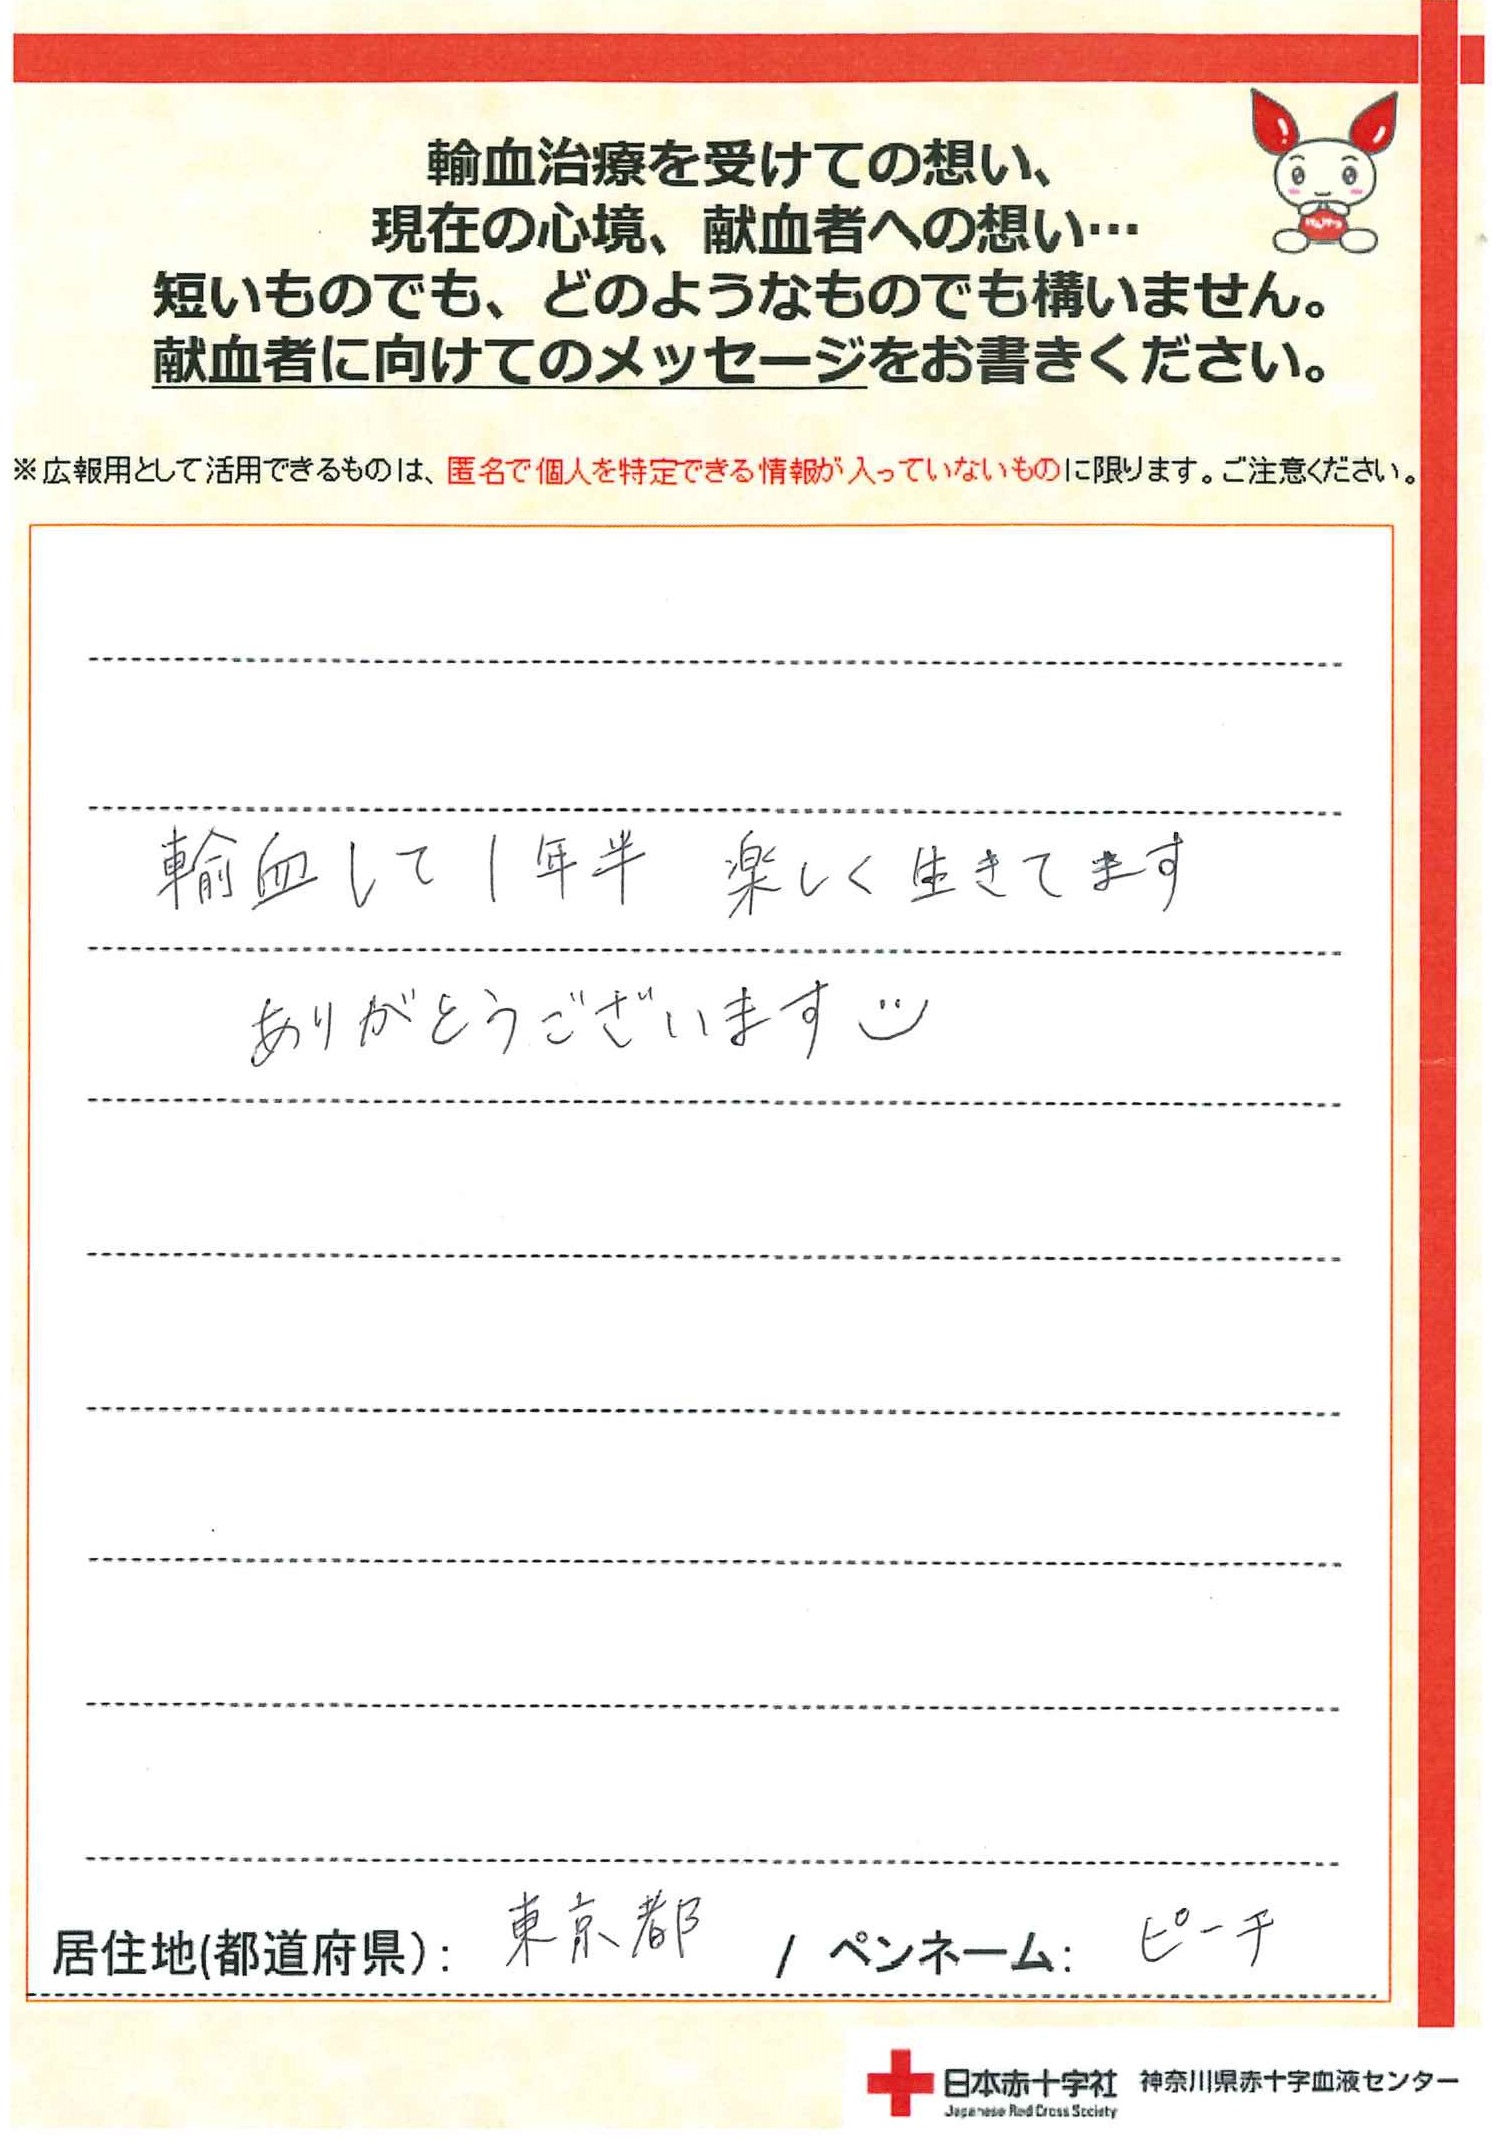 輸血治療を受けての想い、
現在の心境、献血者への想い…
短いものでも、どのようなものでも構いません。
献血者に向けてのメッセージをお書きください。
※広報用として活用できるものは、匿名で個人を特定できる情報が入っていないものに限ります。ご注意ください。
輸血して1年半 楽しく生きてます
ありがとうございます
居住地(都道府県): 東京都 / ペンネーム: ピーチ
日本赤十字社 神奈川県赤十字血液センター
Japanese Red Cross Society